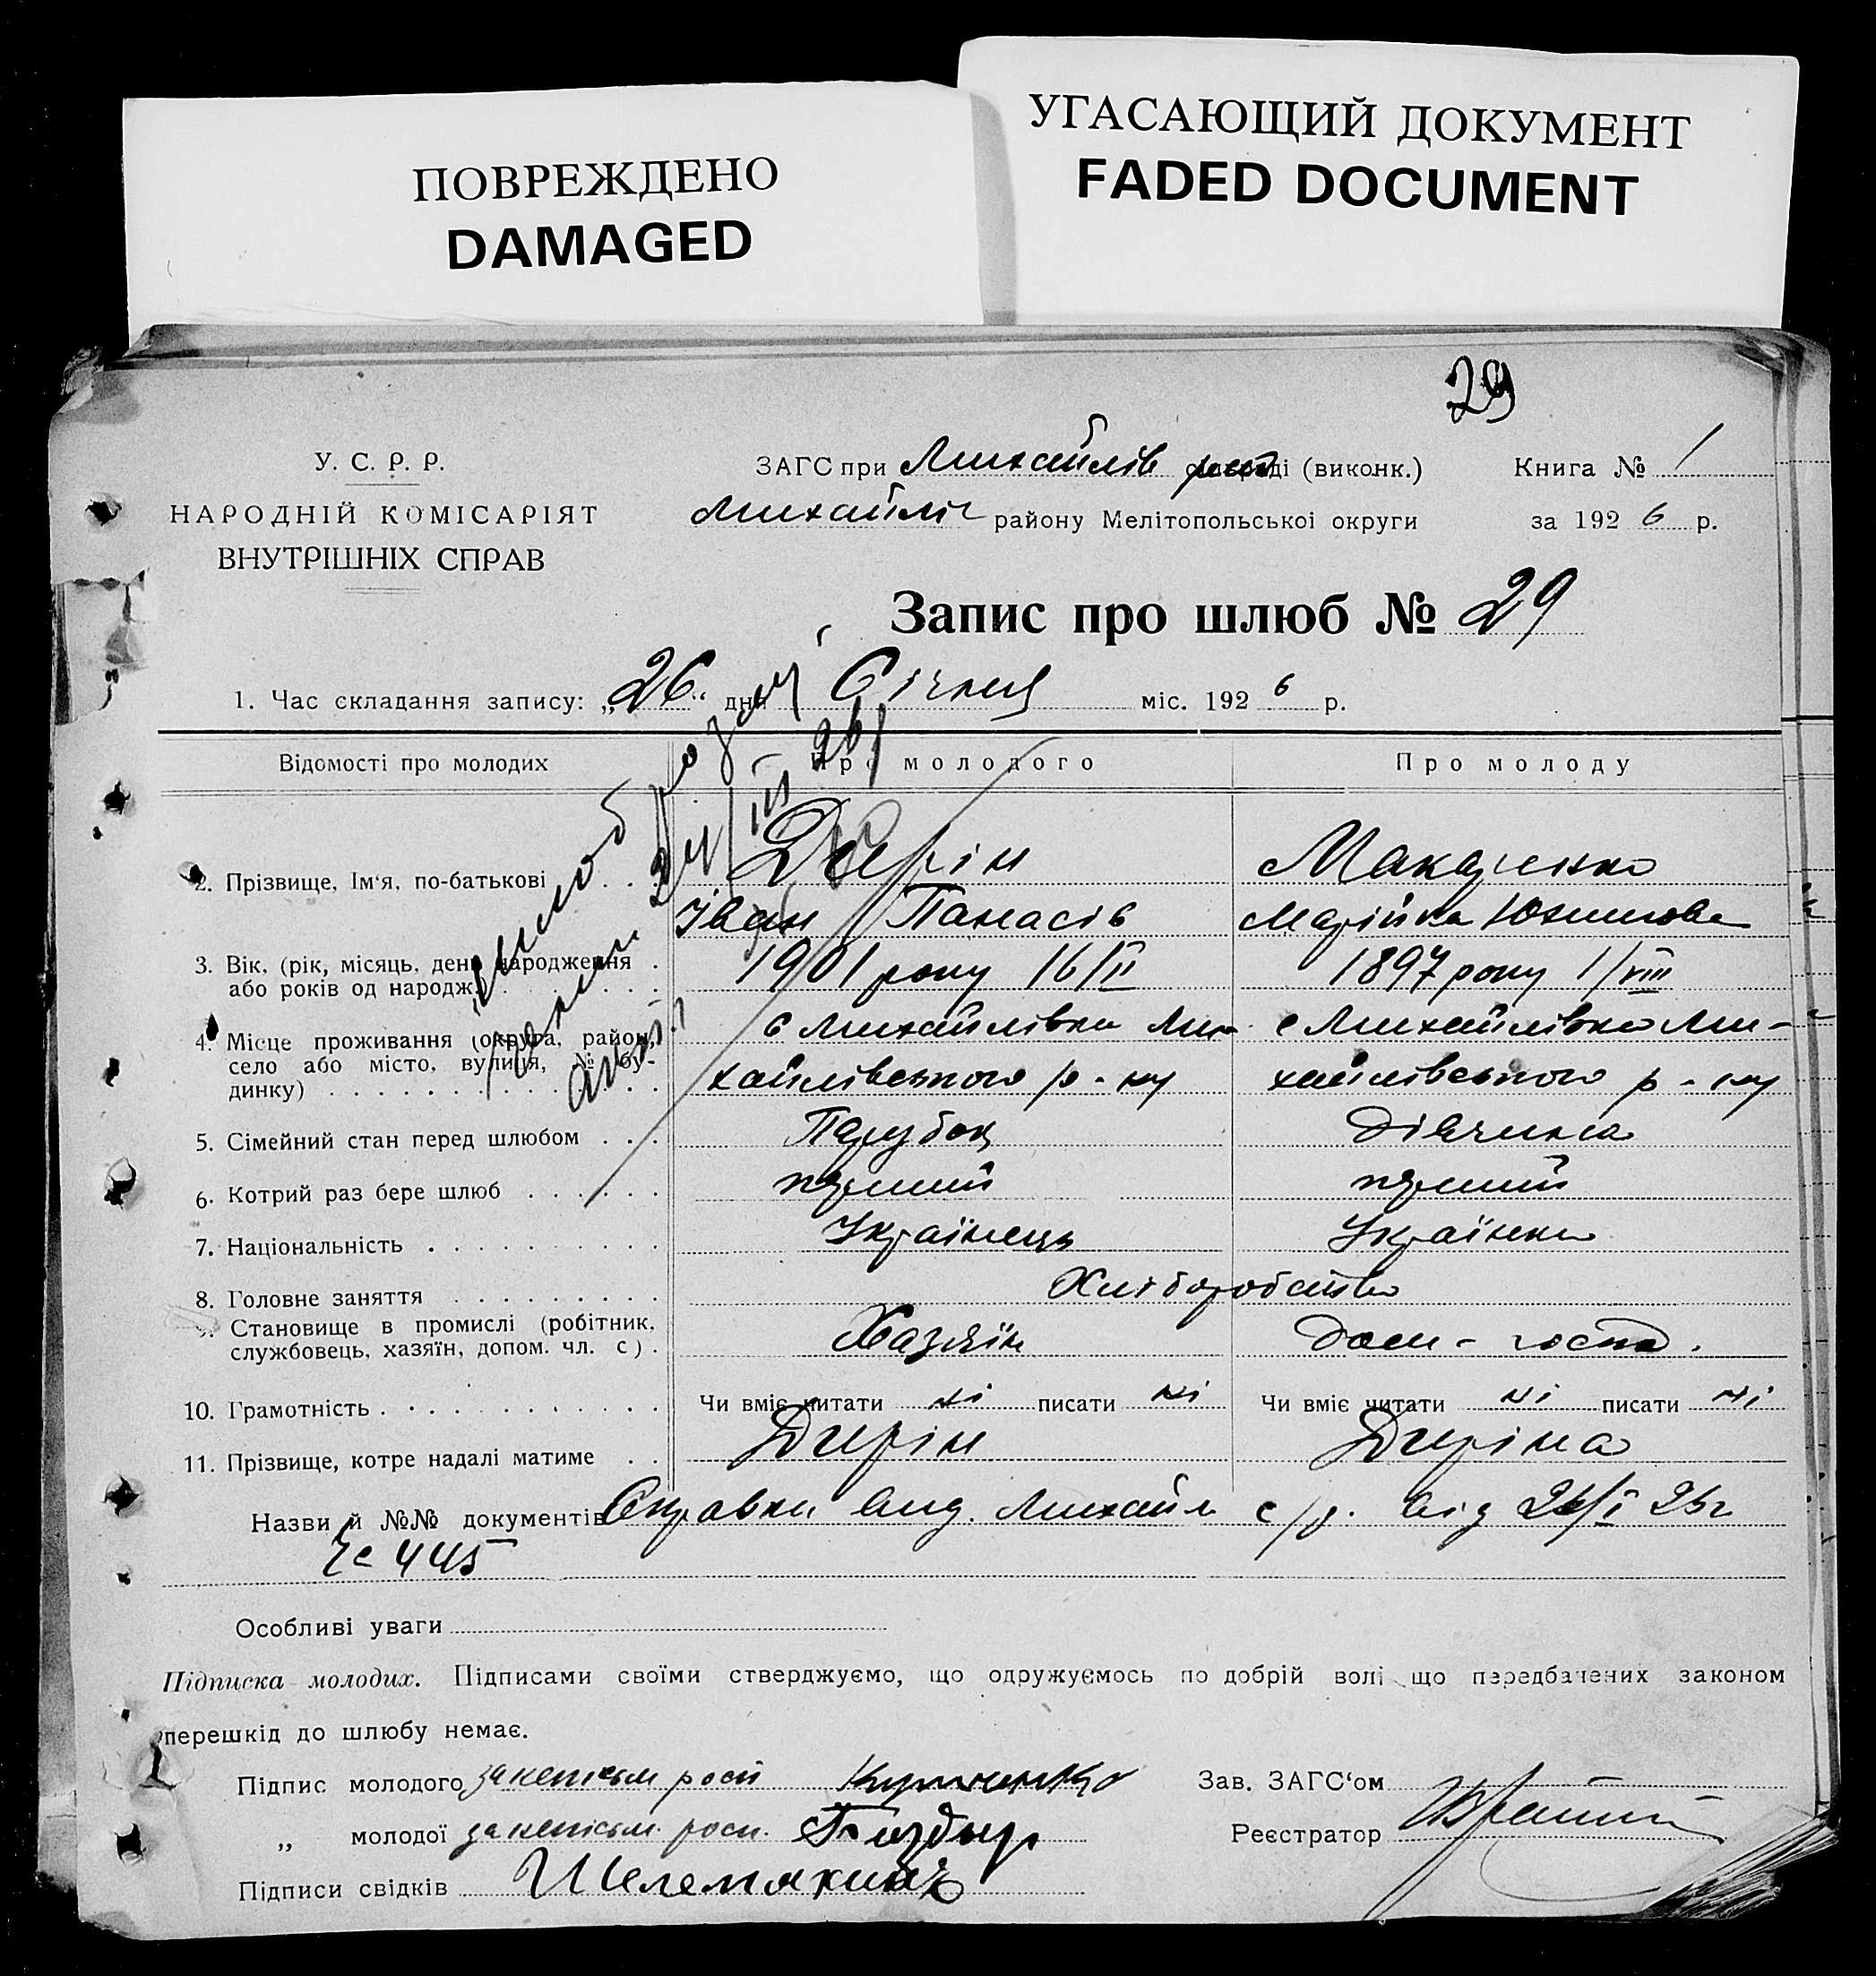 ПОВРЕЖДЕНО
DAMAGED
УГАСАЮЩИЙ ДОКУМЕНТ
FADED DOCUMENT
29
У. С. Р. Р.
НАРОДНІЙ КОМІСАРІЯТ
ВНУТРІШНІХ СПРАВ
ЗАГС при Михайлів (виконк.)
Михайлів району Мелітопольської округи
Книга № 1
за 1926 р.
Запис про шлюб № 29
1. Час складання запису: „26" дня Січня міс. 1926 р.
Відомості про молодих Про молодого Про молоду
2. Прізвище, Ім'я, по-батькові . . . Дирін Макаренко
Іван Панасів Марійка Юхимова
3. Вік, (рік, місяць, день народження . 1901 року 16/II 1897 року 1/VIII
або років од народж.
4. Місце проживання (округа, район, с Михайлівка Ми- с Михайлівка Ми-
село або місто, вулиця, № бу- хайлівського р-ну хайлівського р-ну
динку)
5. Сімейний стан перед шлюбом . . . Парубок Дівчина
6. Котрий раз бере шлюб перший перший
7. Національність Українець Українка
8. Головне заняття Хліборобство
9. Становище в промислі (робітник, Хазяїн Дом-госпо.
службовець, хазяїн, допом. чл. с) .
10. Грамотність Чи вміє читати ні писати ні Чи вміє читати ні писати ні
11. Прізвище, котре надалі матиме . . Дирін Диріна
Назви й №№ документів Справки вид. Михайл с/р. від 26/I 26г
№ 445
Особливі уваги
Підписка молодих. Підписами своїми стверджуємо, що одружуємось по добрій волі що передбачених законом
перешкід до шлюбу немає.
Підпис молодого за неписьм росп
„ молодої за неписьм. росп.
Підписи свідків
Зав. ЗАГС'ом
Реєстратор